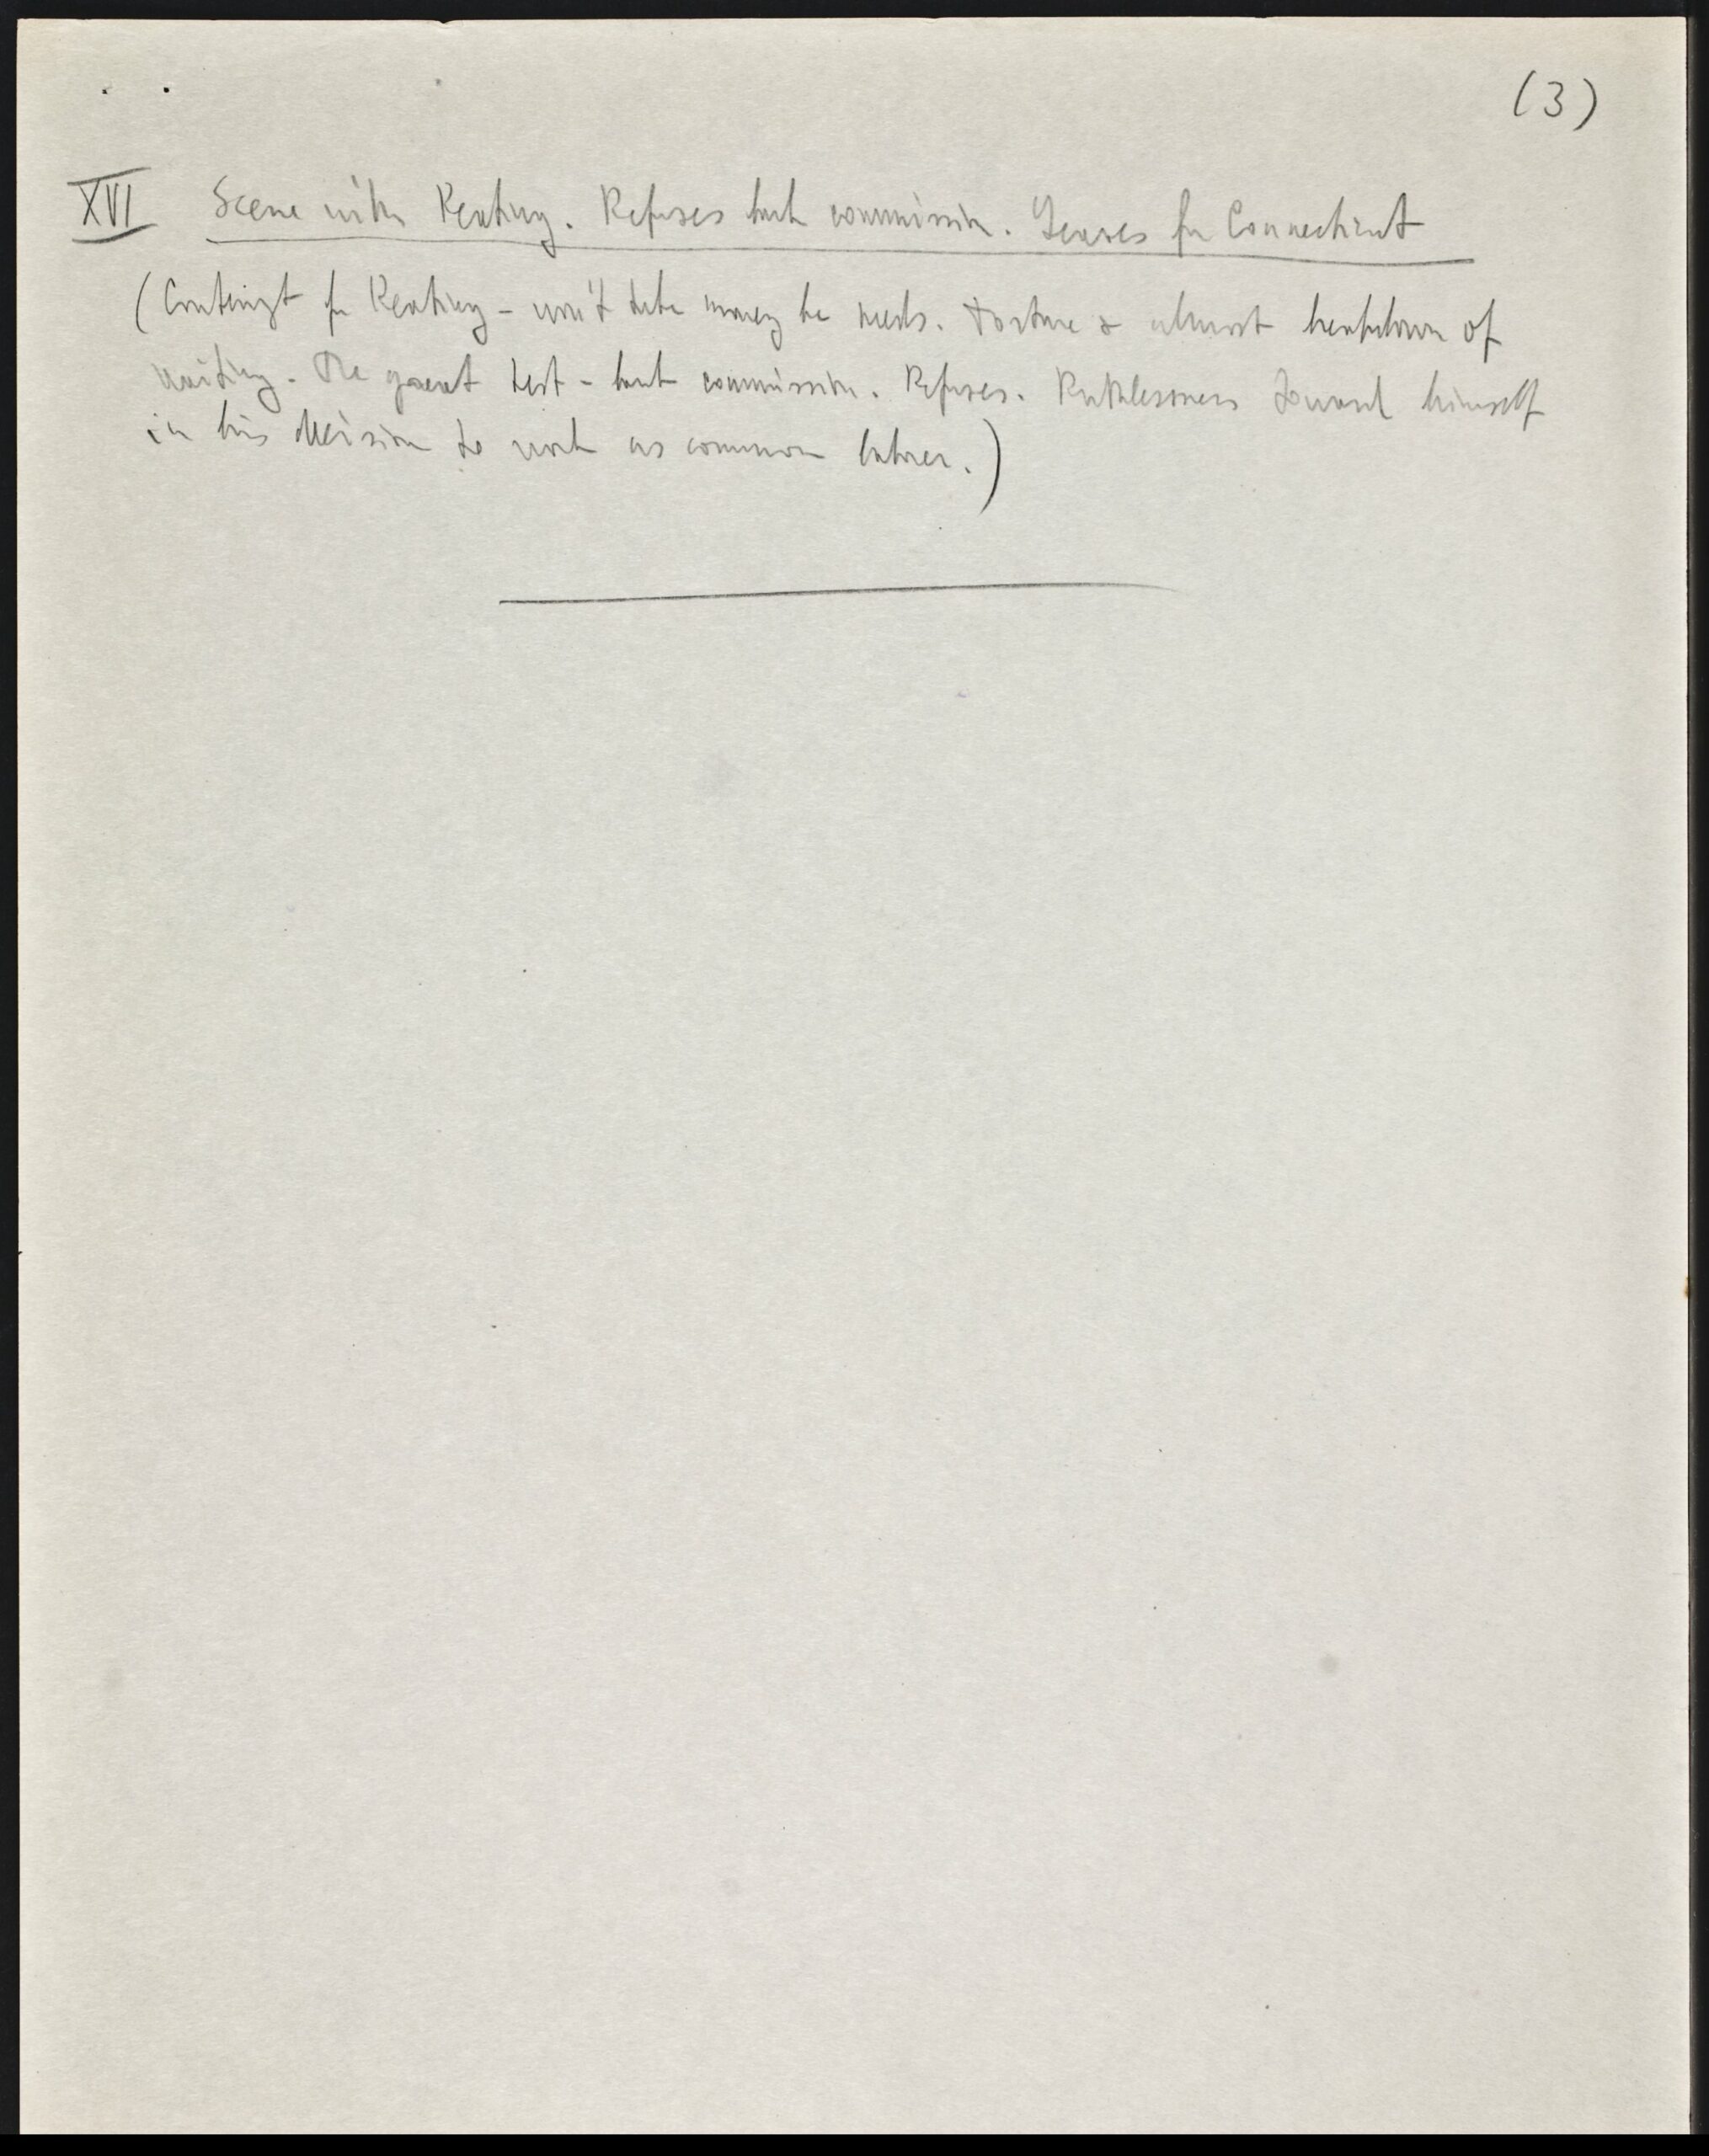 (3)
XVI Scene with Keating. Refuses bank commission. Leaves for Connecticut
(Contempt for Keating - won't take money he needs. Torture & almost breakdown of
waiting. The great test - bank commission. Refuses. Ruthlessness toward himself
in his decision to work as common laborer.)